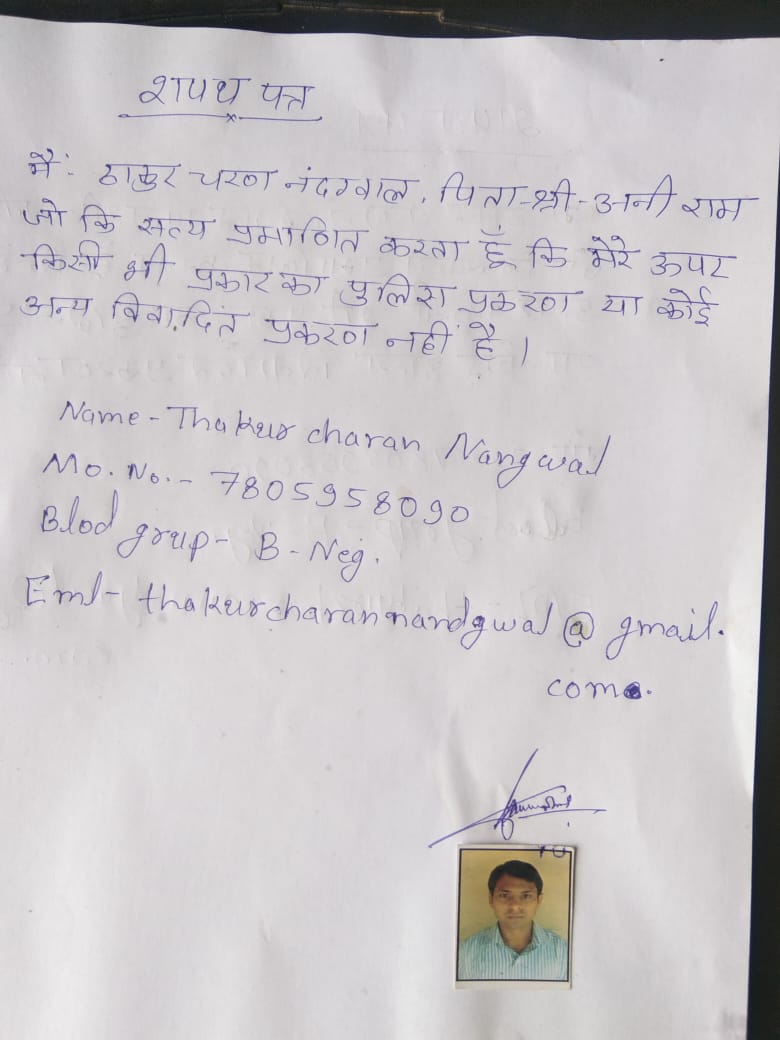 शपथ पत्र
मैं: ठाकुर चरण नंदगवाल, पिता-श्री-अनी राम
जो कि सत्य प्रमाणित करता हूँ कि मेरे ऊपर
किसी भी प्रकार का पुलिस प्रकरण या कोई
अन्य विवादित प्रकरण नहीं है।
Name - Thakur charan Nangwal
Mo. No. - 7805958090
Blod grup - B - Neg.
Eml - thakurcharannandgwal@gmail.
com.